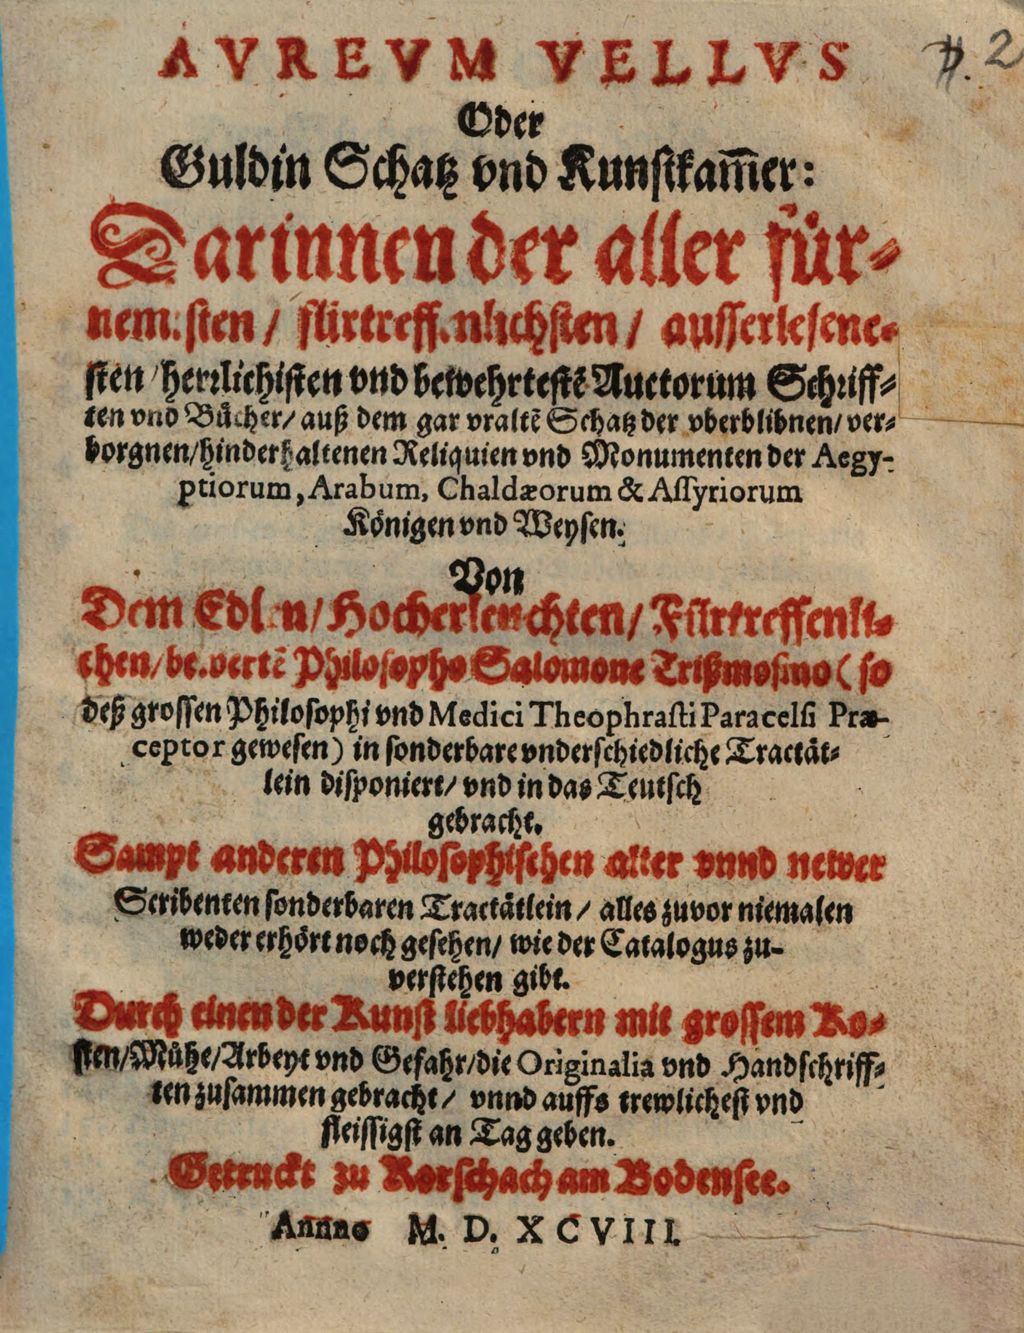 AVREVM VELLVS
Oder
Guldin Schatz vnd Kunstkam̅er:
Darinnen der aller für⸗
nem.sten / fürtreff.nlichsten / ausserlesene⸗
sten / herrlichisten vnd bewehrtestē Auctorum Schriff⸗
ten vnd Bücher / auß dem gar vraltē Schatz der vberblibnen / ver⸗
borgnen / hinderhaltenen Reliquien vnd Monumenten der Aegy-
ptiorum, Arabum, Chaldæorum & Assyriorum
Königen vnd Weysen.
Von
Dem Edlen / Hocherleuchten / Fürtreffenli⸗
chen / bewertē Philosopho Salomone Trißmosino ( so
deß grossen Philosophi vnd Medici Theophrasti Paracelsi Præ-
ceptor gewesen ) in sonderbare vnderschiedliche Tractät⸗
lein disponiert / vnd in das Teutsch
gebracht.
Sampt anderen Philosophischen alter vnnd newer
Scribenten sonderbaren Tractätlein / alles zuvor niemalen
weder erhört noch gesehen / wie der Catalogus zu-
verstehen gibt.
Durch einen der Kunst liebhabern mit grossem Ko⸗
sten / Mühe / Arbeyt vnd Gefahr / die Originalia vnd Handschriff⸗
ten zusammen gebracht / vnnd auffs trewlichest vnd
fleissigst an Tag geben.
Getruckt zu Rorschach am Bodensee.
Annno M. D. XCVIII.